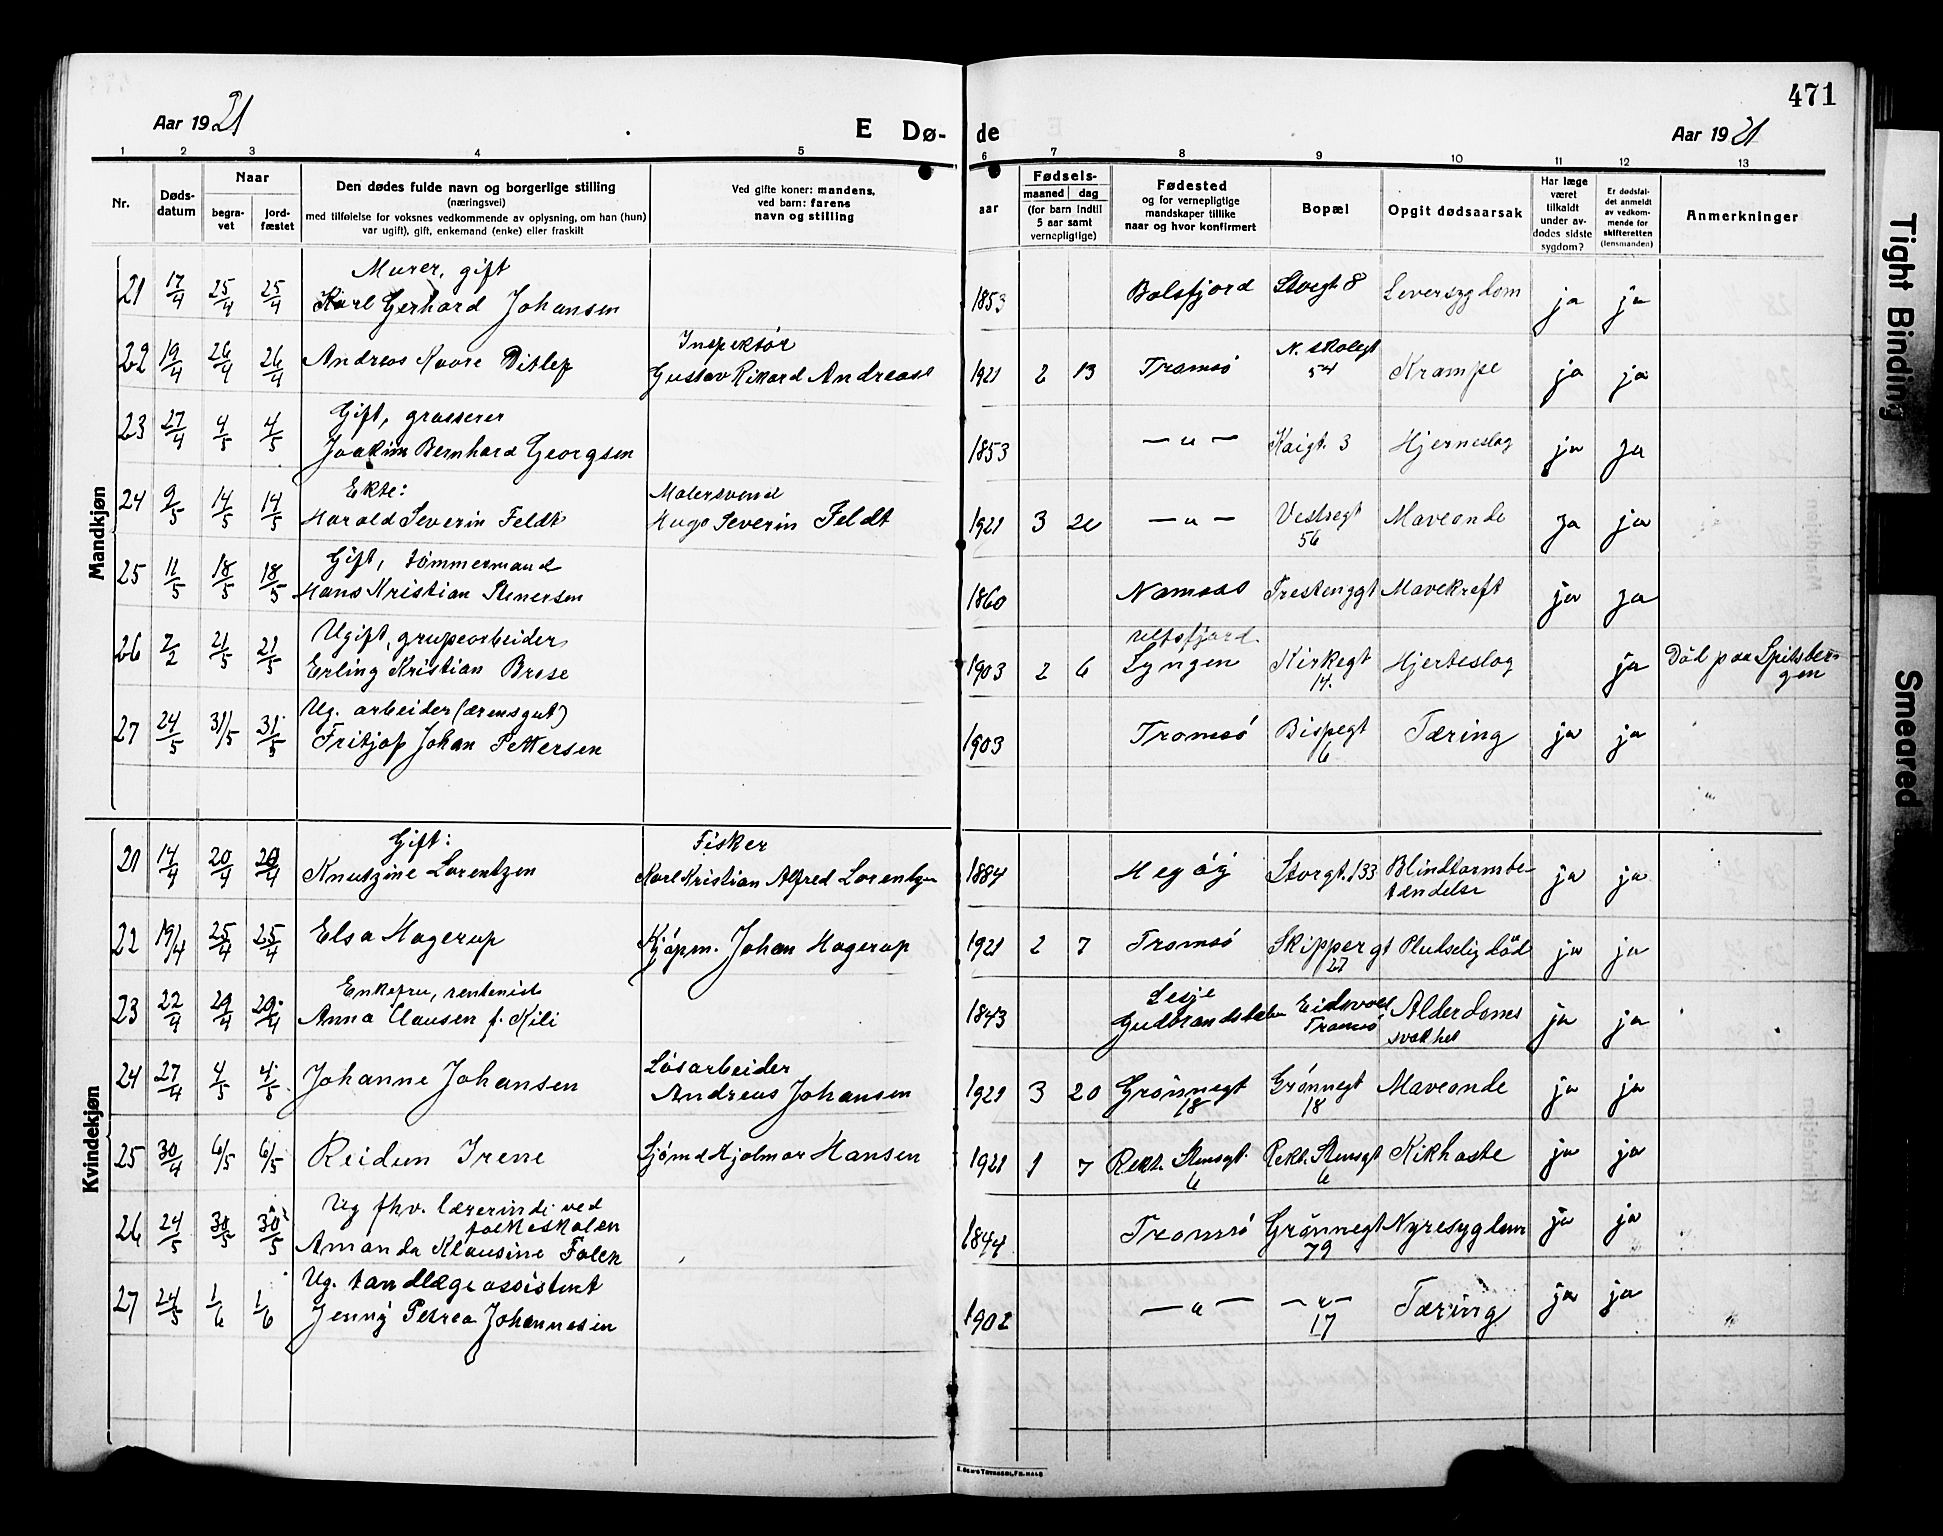 471
Aar 1921
E Dø- de
Aar 1921
1 2 3 4 5 6 7 8 9 10 11 12 13
Nr.
Døds-
datum
Naar
begra-
vet
jord-
fæstet
Den dødes fulde navn og borgerlige stilling
(næringsvei)
med tilføielse for voksnes vedkommende av oplysning, om han (hun)
var ugift), gift, enkemand (enke) eller fraskilt
Ved gifte koner: mandens,
ved barn: farens
navn og stilling
Fødsels-
aar
maaned dag
(for barn indtil
5 aar samt
vernepligtige)
Fødested
og for vernepligtige
mandskaper tillike
naar og hvor konfirmert
Bopæl
Opgit dødsaarsak
Har læge
været
tilkaldt
under av-
dødes sidste
sygdom?
Er dødsfal-
det anmeldt
av vedkom-
mende for
skifteretten
(lensmanden)
Anmerkninger
Mandkjøn
Murer, gift
21 17/4 25/4 25/4 Karl Gerhard Johansen 1853 Balsfjord Storgt 8 Leversygdom ja ja
Inspektør
22 19/4 26/4 26/4 Andreas Kaare Ditlef Gustav Rikard Andreas 1921 2 13 Tromsø N. skolegt 54 Krampe ja ja
Gift, grosserer
23 27/4 4/5 4/5 Joakim Bernhard Georgsen 1853 — " — Kaigt. 3 Hjerneslag ja ja
Ekte: Malersvend
24 9/5 14/5 14/5 Harald Severin Feldt Hugo Severin Feldt 1921 3 20 — " — Vestregt 56 Maveonde ja ja
Gift, tømmermand
25 11/5 18/5 18/5 Hans Kristian Stenersen 1860 Namsos Mavekreft ja ja
Ugift, grupearbeider Ulfsfjord
26 2/2 21/5 21/5 Erling Kristian Brose 1903 2 6 Lyngen Kirkegt 14. Hjerteslag ja Död paa Spitsber-
gen
Ug. arbeider (ærensgut)
27 24/5 31/5 31/5 Fritjof Johan Pettersen 1903 Tromsø Bispegt 6 Tæring ja ja
Kvindekjøn
Gift: Fisker
21 14/4 20/4 20/4 Knutzine Lorentzen Karl Kristian Alfred Lorentzen 1884 Storgt. 133 Blindtarmbe-
tændelse ja ja
22 19/4 25/4 25/4 Elsa Hagerup Kjøpm. Johan Hagerup 1921 2 7 Tromsø Skippergt 27 Plutselig död ja ja
Enkefru, rentenist Lesje
23 22/4 29/4 29/4 Anna Clausen f. Kili 1843 Gudbrandsdalen Eidsvold Tromsø Alderdoms
svakhet ja ja
Løsarbeider
24 27/4 4/5 4/5 Johanne Johansen Andreas Johansen 1921 3 20 Grønnegt 18 Grønnegt 18 Maveonde ja ja
25 30/4 6/5 6/5 Reidun Irene Sjømd Hjalmar Hansen 1921 1 7 Rekt. Stensgt. 6 Rekt. Stensgt 6 Kikhoste ja ja
Ug fhv. lærerinde ved
folkeskolen
26 24/5 30/5 30/5 Amanda Klausine Falck 1844 Tromsø Grønnegt 79 Nyresygdom ja ja
Ug. tandlægeassistent
27 24/5 1/6 1/6 Jenny Petrea Johannesen 1902 — " — — " — 17 Tæring ja ja
Tight Binding
Smeared